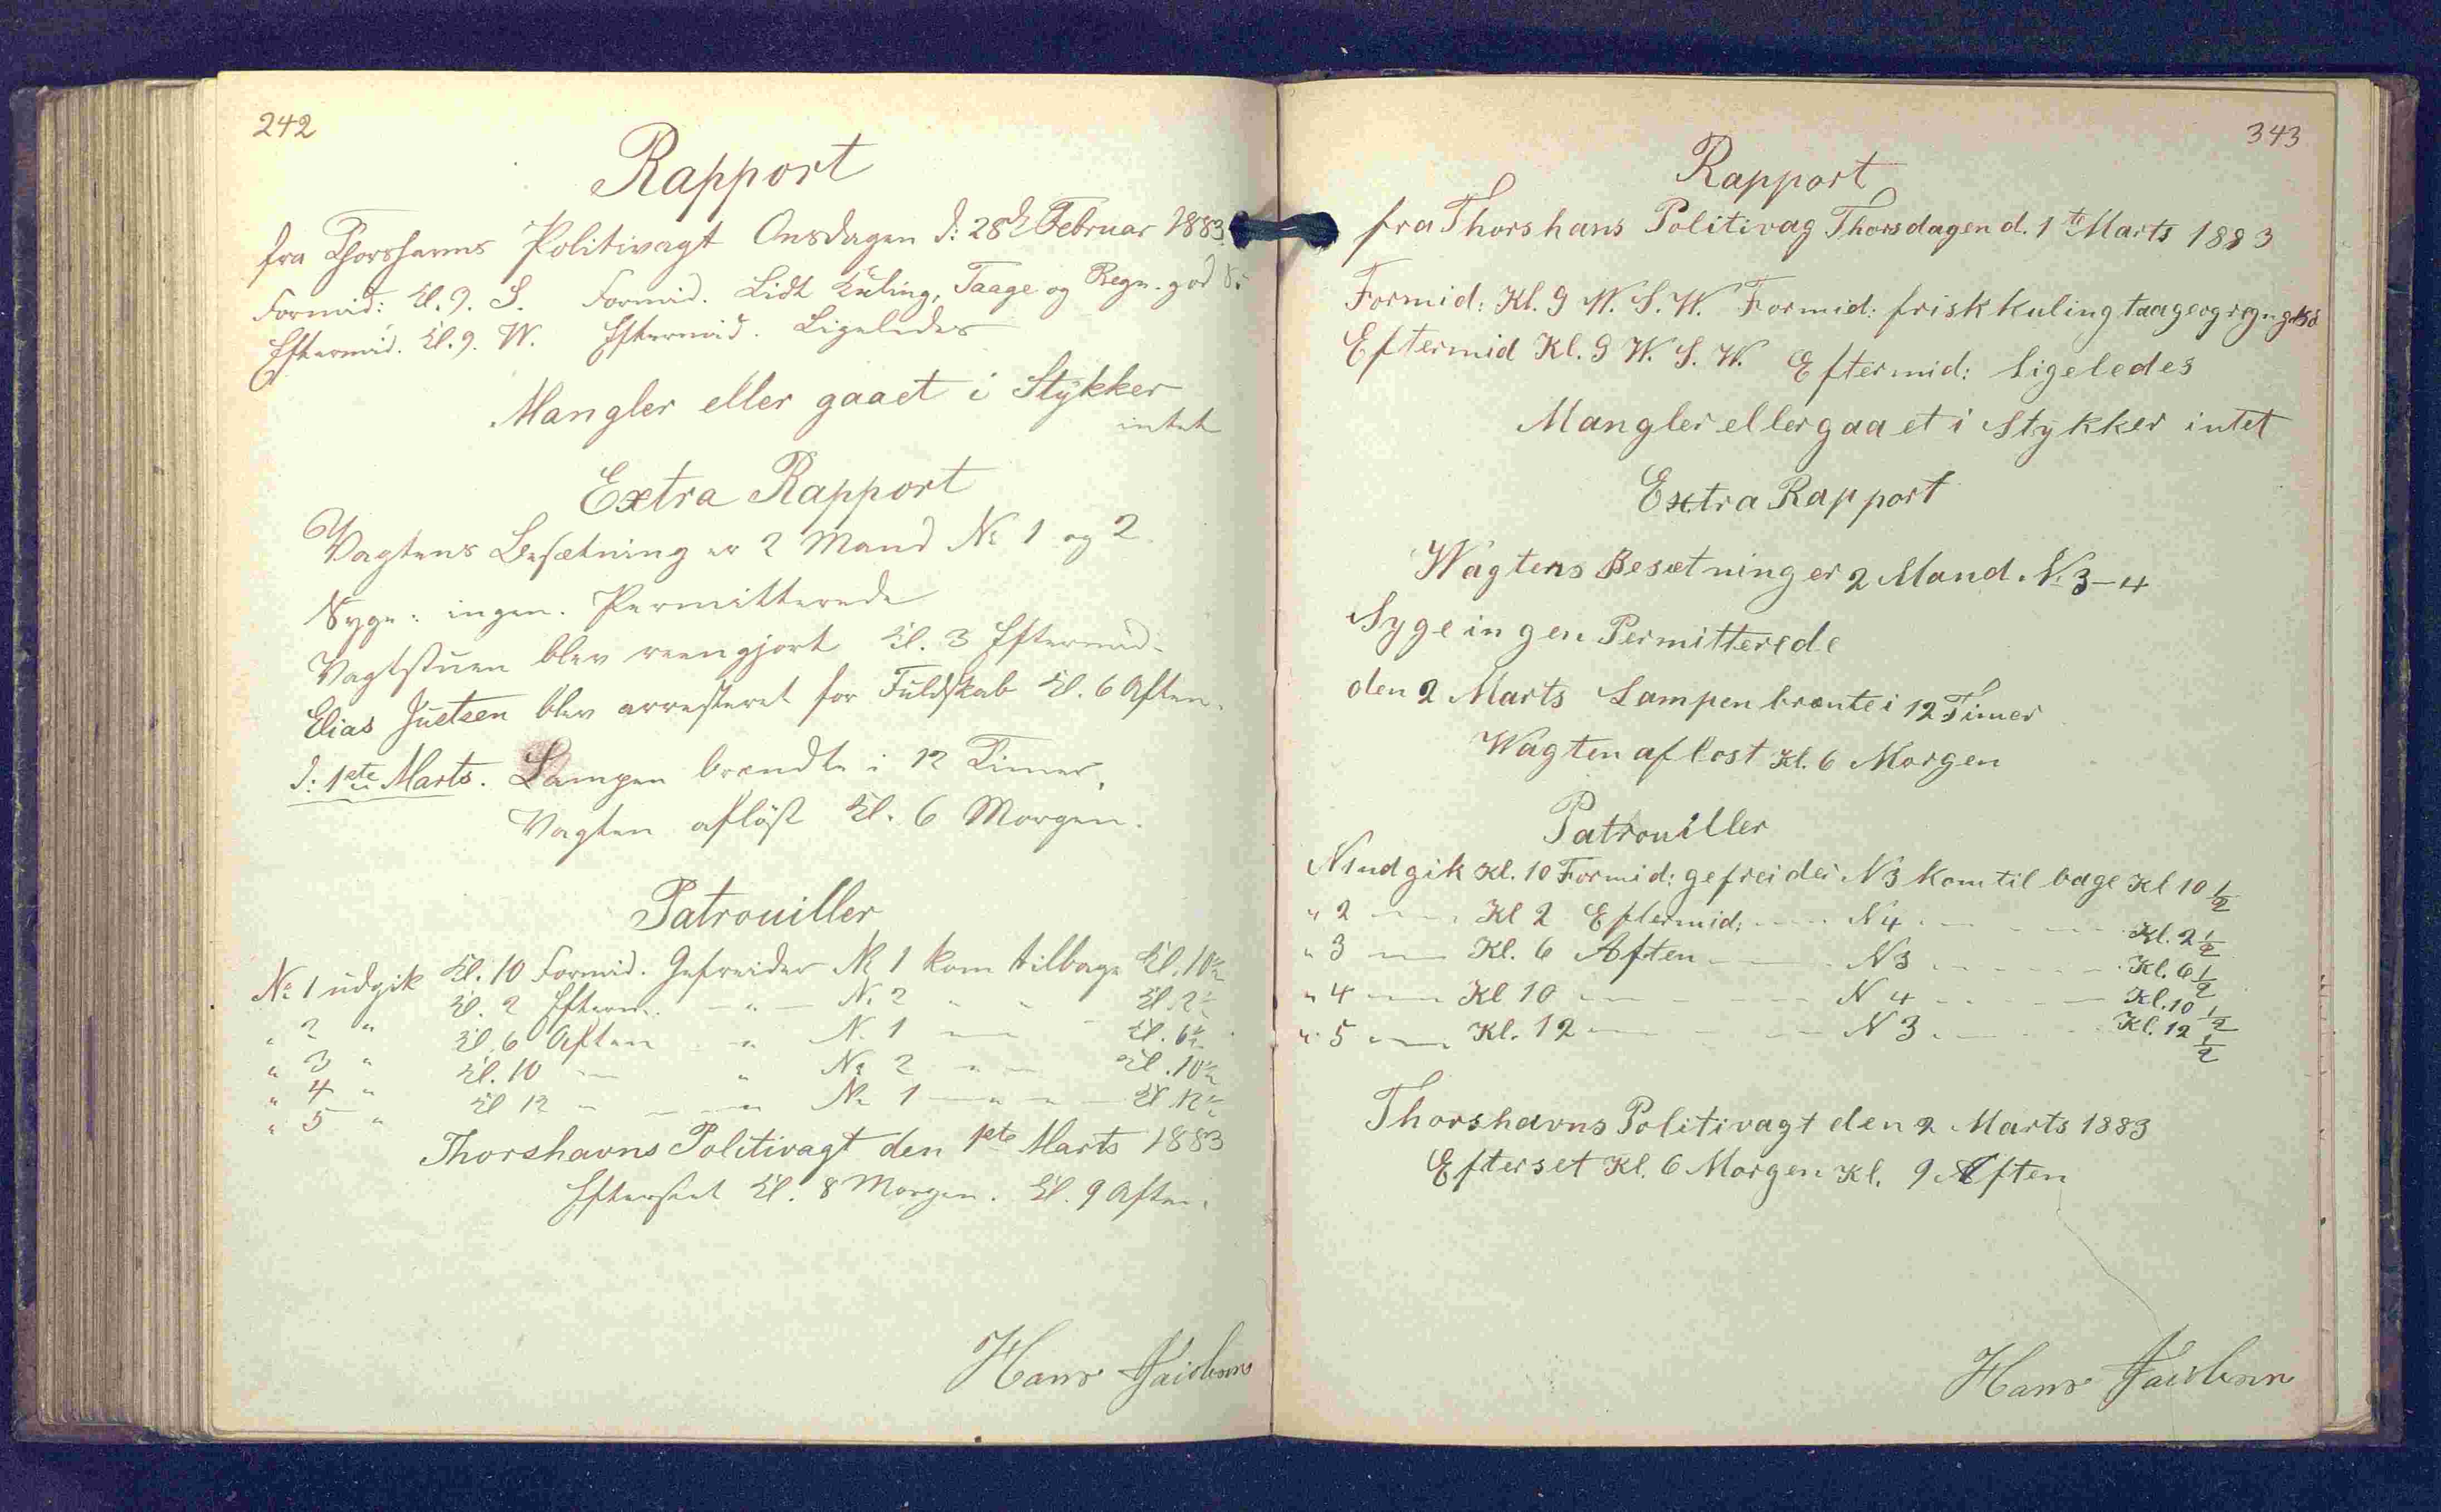 242
Rapport
fra Thorshavns Politivagt Onsdagen d: 28d Februar 1883
Formid: Kl. 9. S. Formid. Lidt Kuling, Taage og Regn. god
Eftermid. Kl. 9. W. Eftermid. Ligeledes
Mangler eller gaaet i Stykker
intet
Extra Rapport
Vagtens Besætning er 2 Mand No 1 og 2
Syge: ingen. Permitterede
Vagtstuen blev reengjort Kl. 3 Eftermid.
Elias Justsen blev arresteret for Fuldskab Kl. 6 Aften.
d: 1ste Marts. Lampen brændte i 12 Timer.
Vagten afløst Kl. 6 Morgen.
Patrouiller
No 1 udgik Kl. 10 Formid. Gefreider No 1 kom tilbage Kl. 10½
" 2 " Kl. 2 Efterm. - " - No 2 " " Kl. 2½
" 3 " Kl. 6 Aften - " No 1 - - Kl. 6½
" 4 " Kl. 10 - " No 2 - - Kl. 10½
" 5 " Kl 12 - - - No 1 - - - Kl 12½
Thorshavns Politivagt den 1ste Marts 1883
Efterseet Kl. 8 Morgen. Kl. 9 Aften.
Hans Jacobsen
343
Rapport
fra Thorshans Politivag Thorsdagen d. 1te Marts 1883
Formid: Kl. 9 W. S. W. Formid: frisk kuling taage og regn
Eftermid Kl. 9 W. S. W. Eftermid: Ligeledes
Mangler eller gaaet i Stykker intet
Extra Rapport
Wagtens Besætning er 2 Mand. N. 3-4
Syge ingen Permitterede
den 2 Marts Lampen brænte i 12 Timer
Wagten aflost Kl. 6 Morgen
Patrouiller
N1 udgik Kl. 10 Formid: gefreider N3 kom til bage Kl 10 ½
" 2 - Kl 2 Eftermid: - N4 - Kl. 2 ½
" 3 - Kl. 6 Aften - N3 - Kl. 6 ½
" 4 - Kl 10 - N 4 - Kl. 10 ½
" 5 - Kl. 12 - N 3 - Kl. 12 ½
Thorshavns Politivagt den 2 Marts 1883
Efterset Kl. 6 Morgen Kl. 9 Aften
Hans Jacobsen